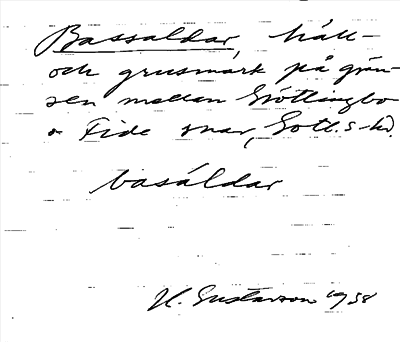 Bassaldar, häll-
och grusmark på grän-
sen mellan Grötlingbo
o Fide snar, Gotl. s. hd.
basáldar
H. Gustavson 1938